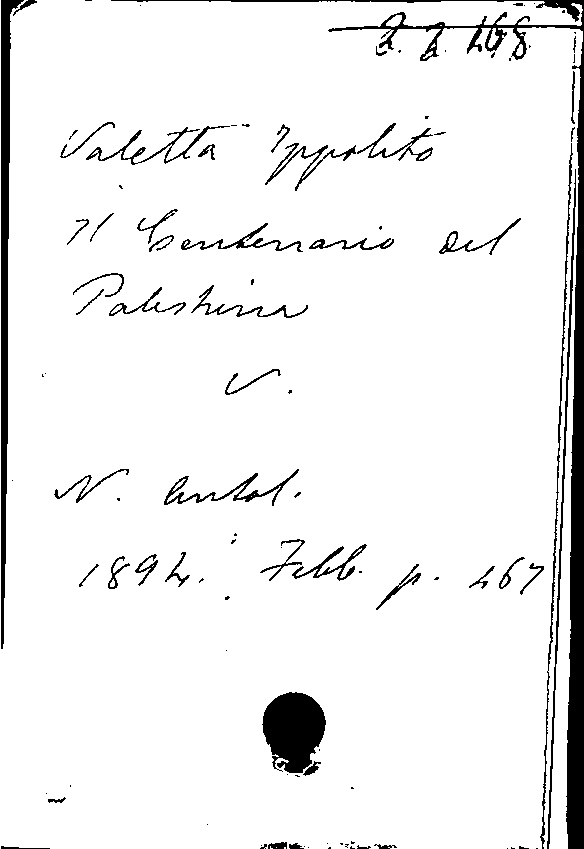 2. 2. 468
Valetta Ippolito
Il Centenario del
Palestrina
V.
N. Antol.
1894. Febb. p. 467